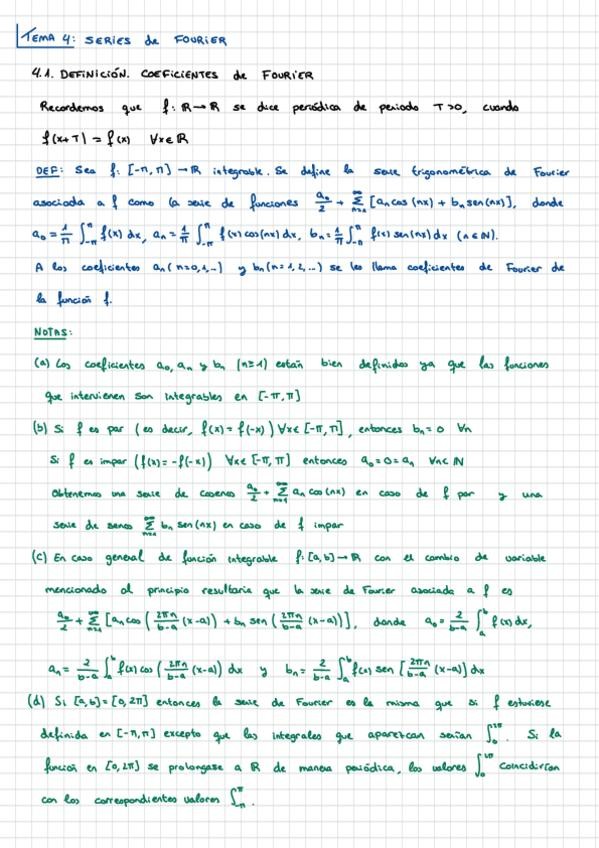 TEMA 4: SERIES de FOURIER
4.1. DEFINICIÓN. COEFICIENTES de FOURIER
Recordemos que f: ℝ→ℝ se dice periódica de periodo T>0, cuando
f(x+T) = f(x) ∀x∈ℝ
DEF: Sea f: [-π, π] → ℝ integrable. Se define la serie trigonométrica de Fourier
asociada a f como la serie de funciones a₀/2 + ∑_{n=1}^{∞} [aₙ cos (nx) + bₙ sen(nx)], donde
a₀ = 1/π ∫_{-π}^{π} f(x) dx, aₙ = 1/π ∫_{-π}^{π} f(x) cos(nx) dx, bₙ = 1/π ∫_{-π}^{π} f(x) sen(nx) dx (n∈ℕ).
A los coeficientes aₙ (n=0,1,...) y bₙ (n=1,2,...) se les llama coeficientes de Fourier de
la función f.
NOTAS:
(a) Los coeficientes a₀, aₙ y bₙ (n≥1) están bien definidos ya que las funciones
que intervienen son integrables en [-π, π]
(b) Si f es par (es decir, f(x) = f(-x)) ∀x∈ [-π, π], entonces bₙ = 0 ∀n
Si f es impar (f(x) = -f(-x)) ∀x∈ [-π, π] entonces a₀ = 0 = aₙ ∀n∈ℕ
Obtenemos una serie de cosenos a₀/2 + ∑_{n=1}^{∞} aₙ cos (nx) en caso de f par y una
serie de senos ∑_{n=1}^{∞} bₙ sen (nx) en caso de f impar
(c) En caso general de función integrable f: [a,b] → ℝ con el cambio de variable
mencionado al principio resultaría que la serie de Fourier asociada a f es
a₀/2 + ∑_{n=1}^{∞} [aₙ cos (2πn/(b-a) (x-a)) + bₙ sen (2πn/(b-a) (x-a))], donde a₀ = 2/(b-a) ∫_a^b f(x) dx,
aₙ = 2/(b-a) ∫_a^b f(x) cos (2πn/(b-a) (x-a)) dx y bₙ = 2/(b-a) ∫_a^b f(x) sen [2πn/(b-a) (x-a)] dx
(d) Si [a,b] = [0, 2π] entonces la serie de Fourier es la misma que si f estuviese
definida en [-π, π] excepto que las integrales que aparezcan serían ∫_0^{2π}. Si la
función en [0, 2π] se prolongase a ℝ de manera periódica, los valores ∫_0^{2π} coincidirían
con los correspondientes valores ∫_{-π}^{π}.